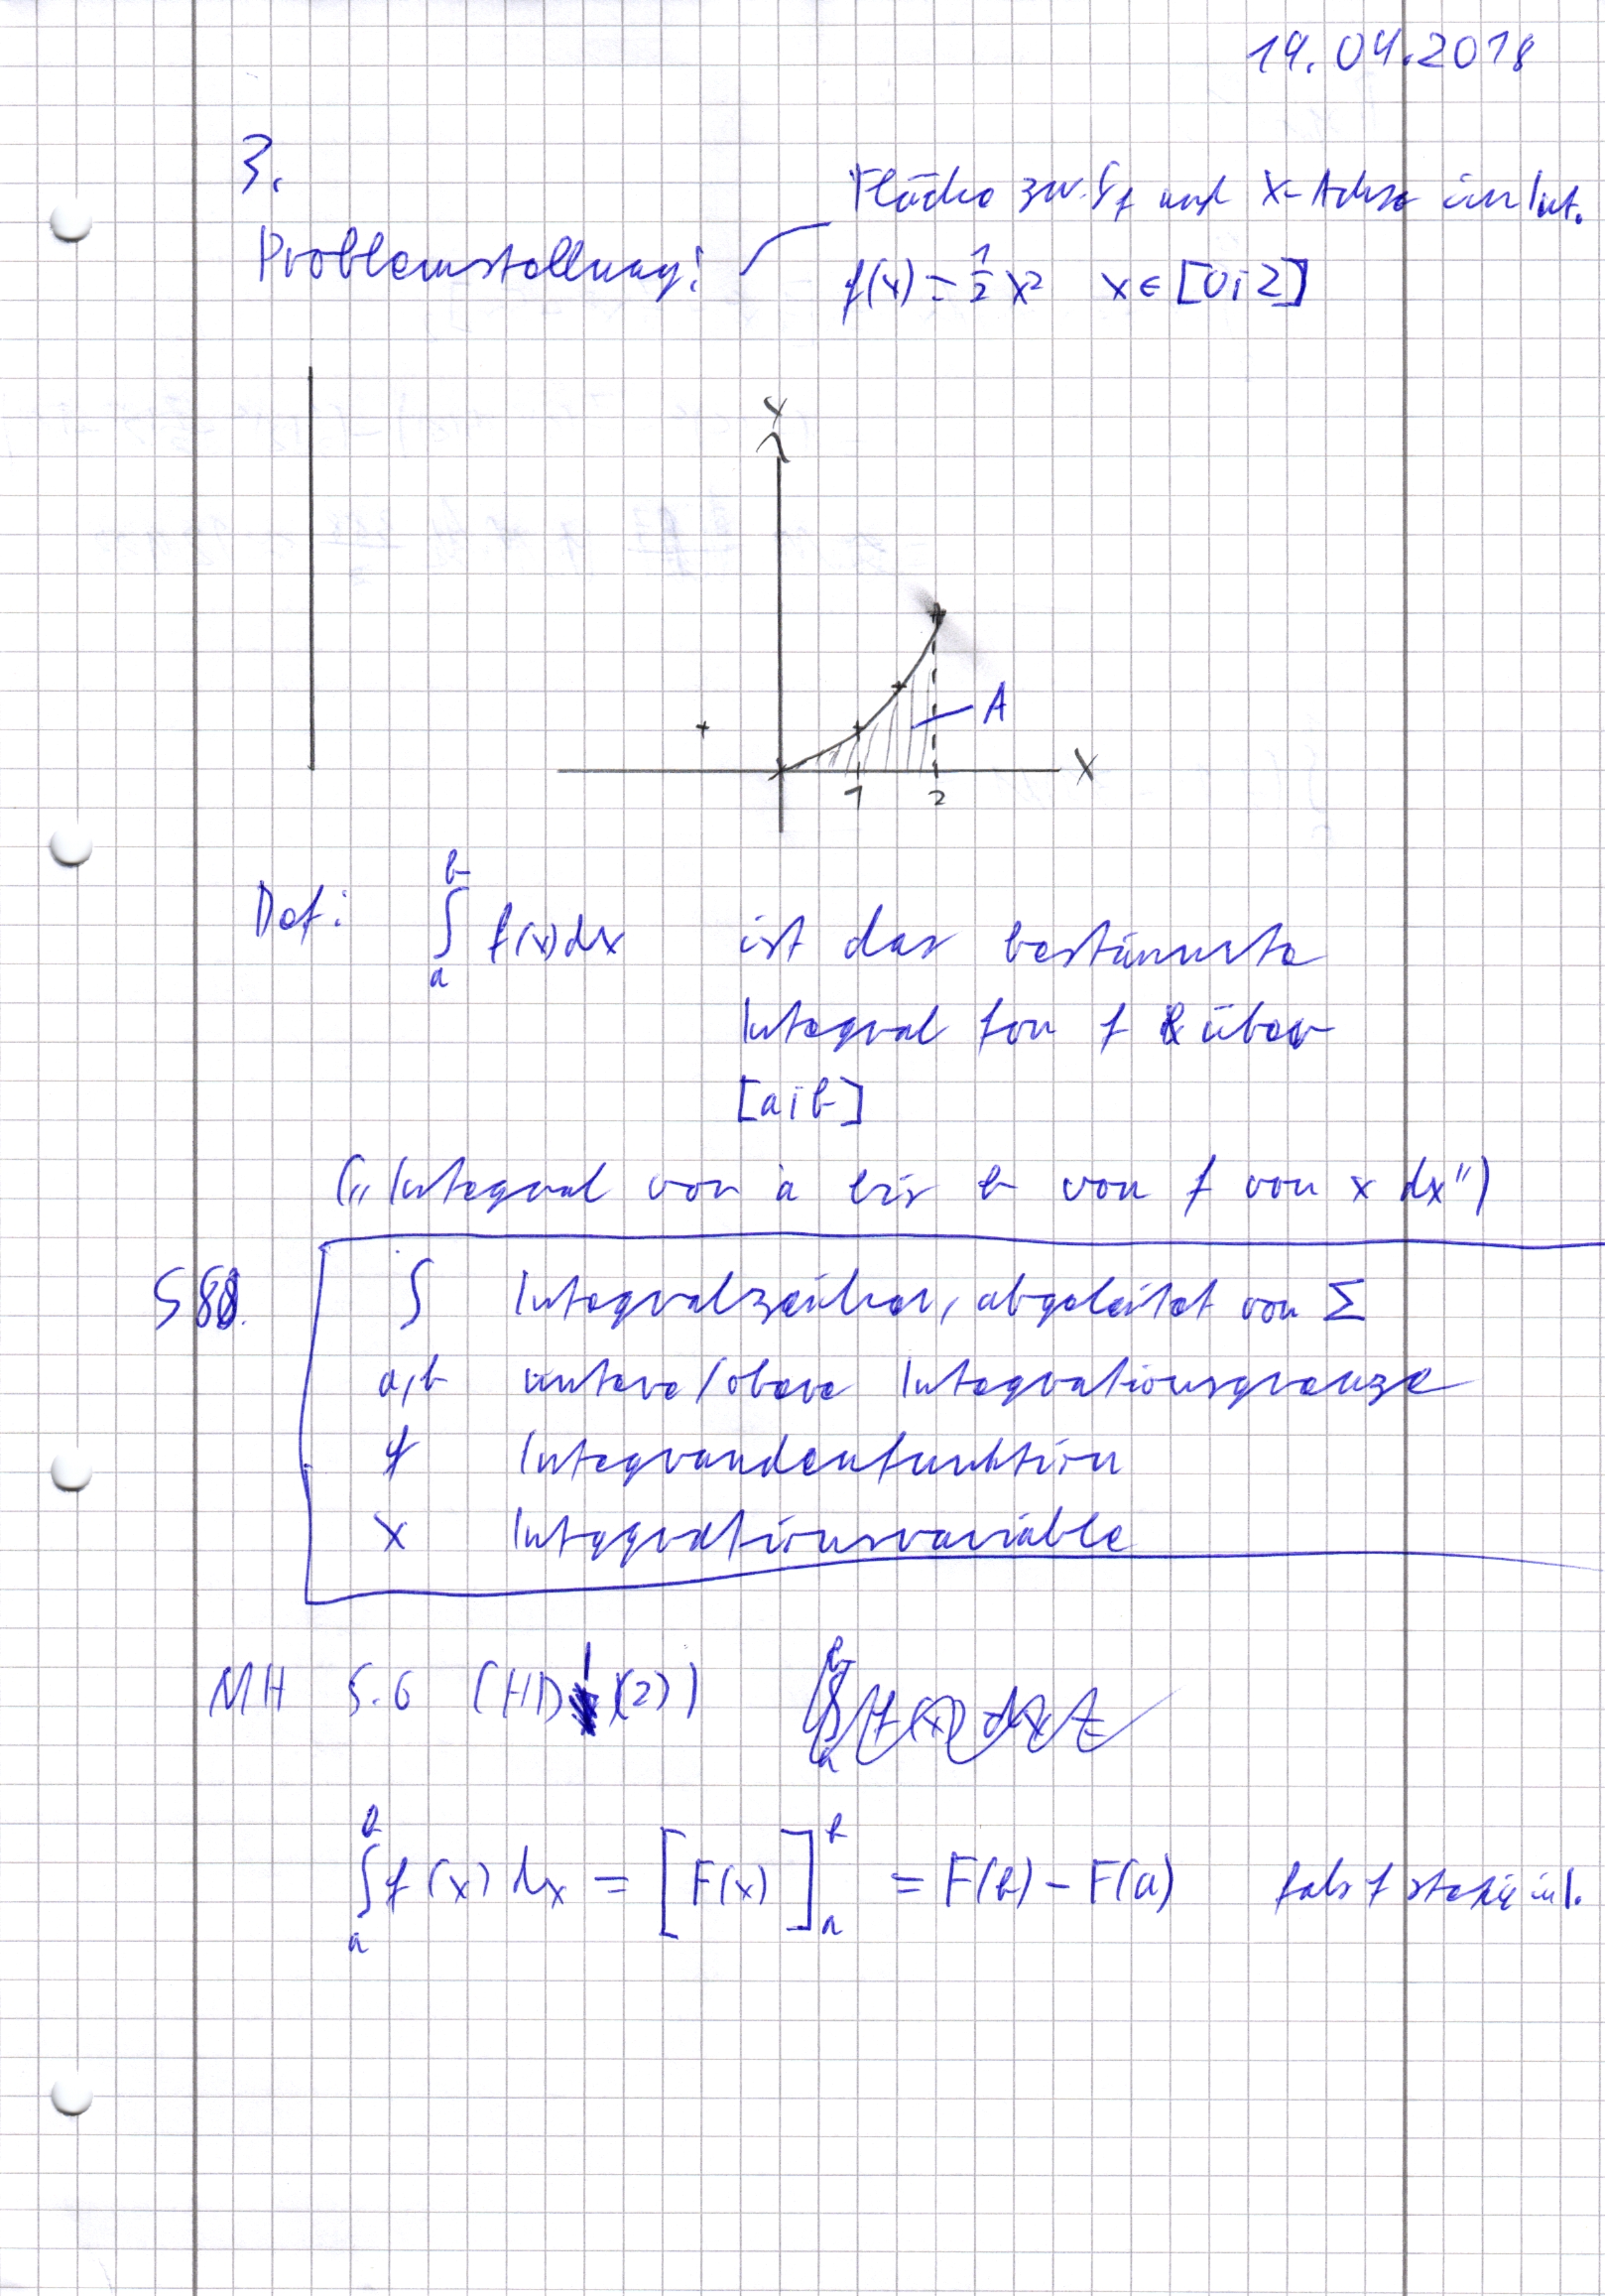 19.04.2018
3.
Problemstellung: Fläche zw. Gf und X-Achse im Int.
f(x) = 1/2 x² x ∈ [0;2]
y
A
x
1 2
Def: ∫_a^b f(x) dx ist das bestimmte
Integral fon f über
[a;b]
(„Integral von a bis b von f von x dx")
S 88. ∫ Integralzeichen, abgeleitet von Σ
a,b untere/obere Integrationsgrenze
f Integrandenfunktion
x Integrationsvariable
MH S.6 (HDI (2))
∫_a^b f(x) dx = [F(x)]_a^b = F(b) - F(a) fals f stetig in I.